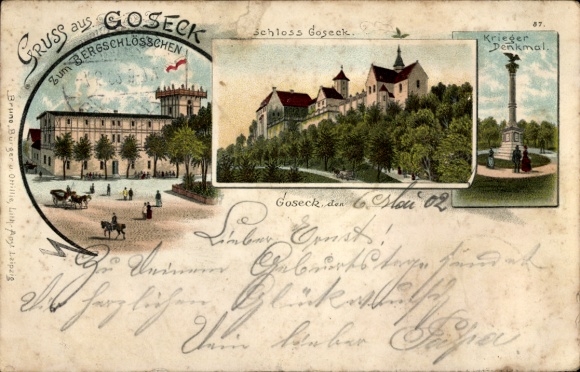 Gruss aus GOSECK
Zum BERGSCHLÖSSCHEN
Schloss Goseck.
37.
Krieger
Denkmal.
Bruno Bürger & Ottillie, Lith.-Anst. Leipzig
Goseck, den 6. Mai 02
Lieber Ernst!
Zu Deinem Geburtstage sendet
Dir herzlichen Glückwunsch
Dein lieber Papa